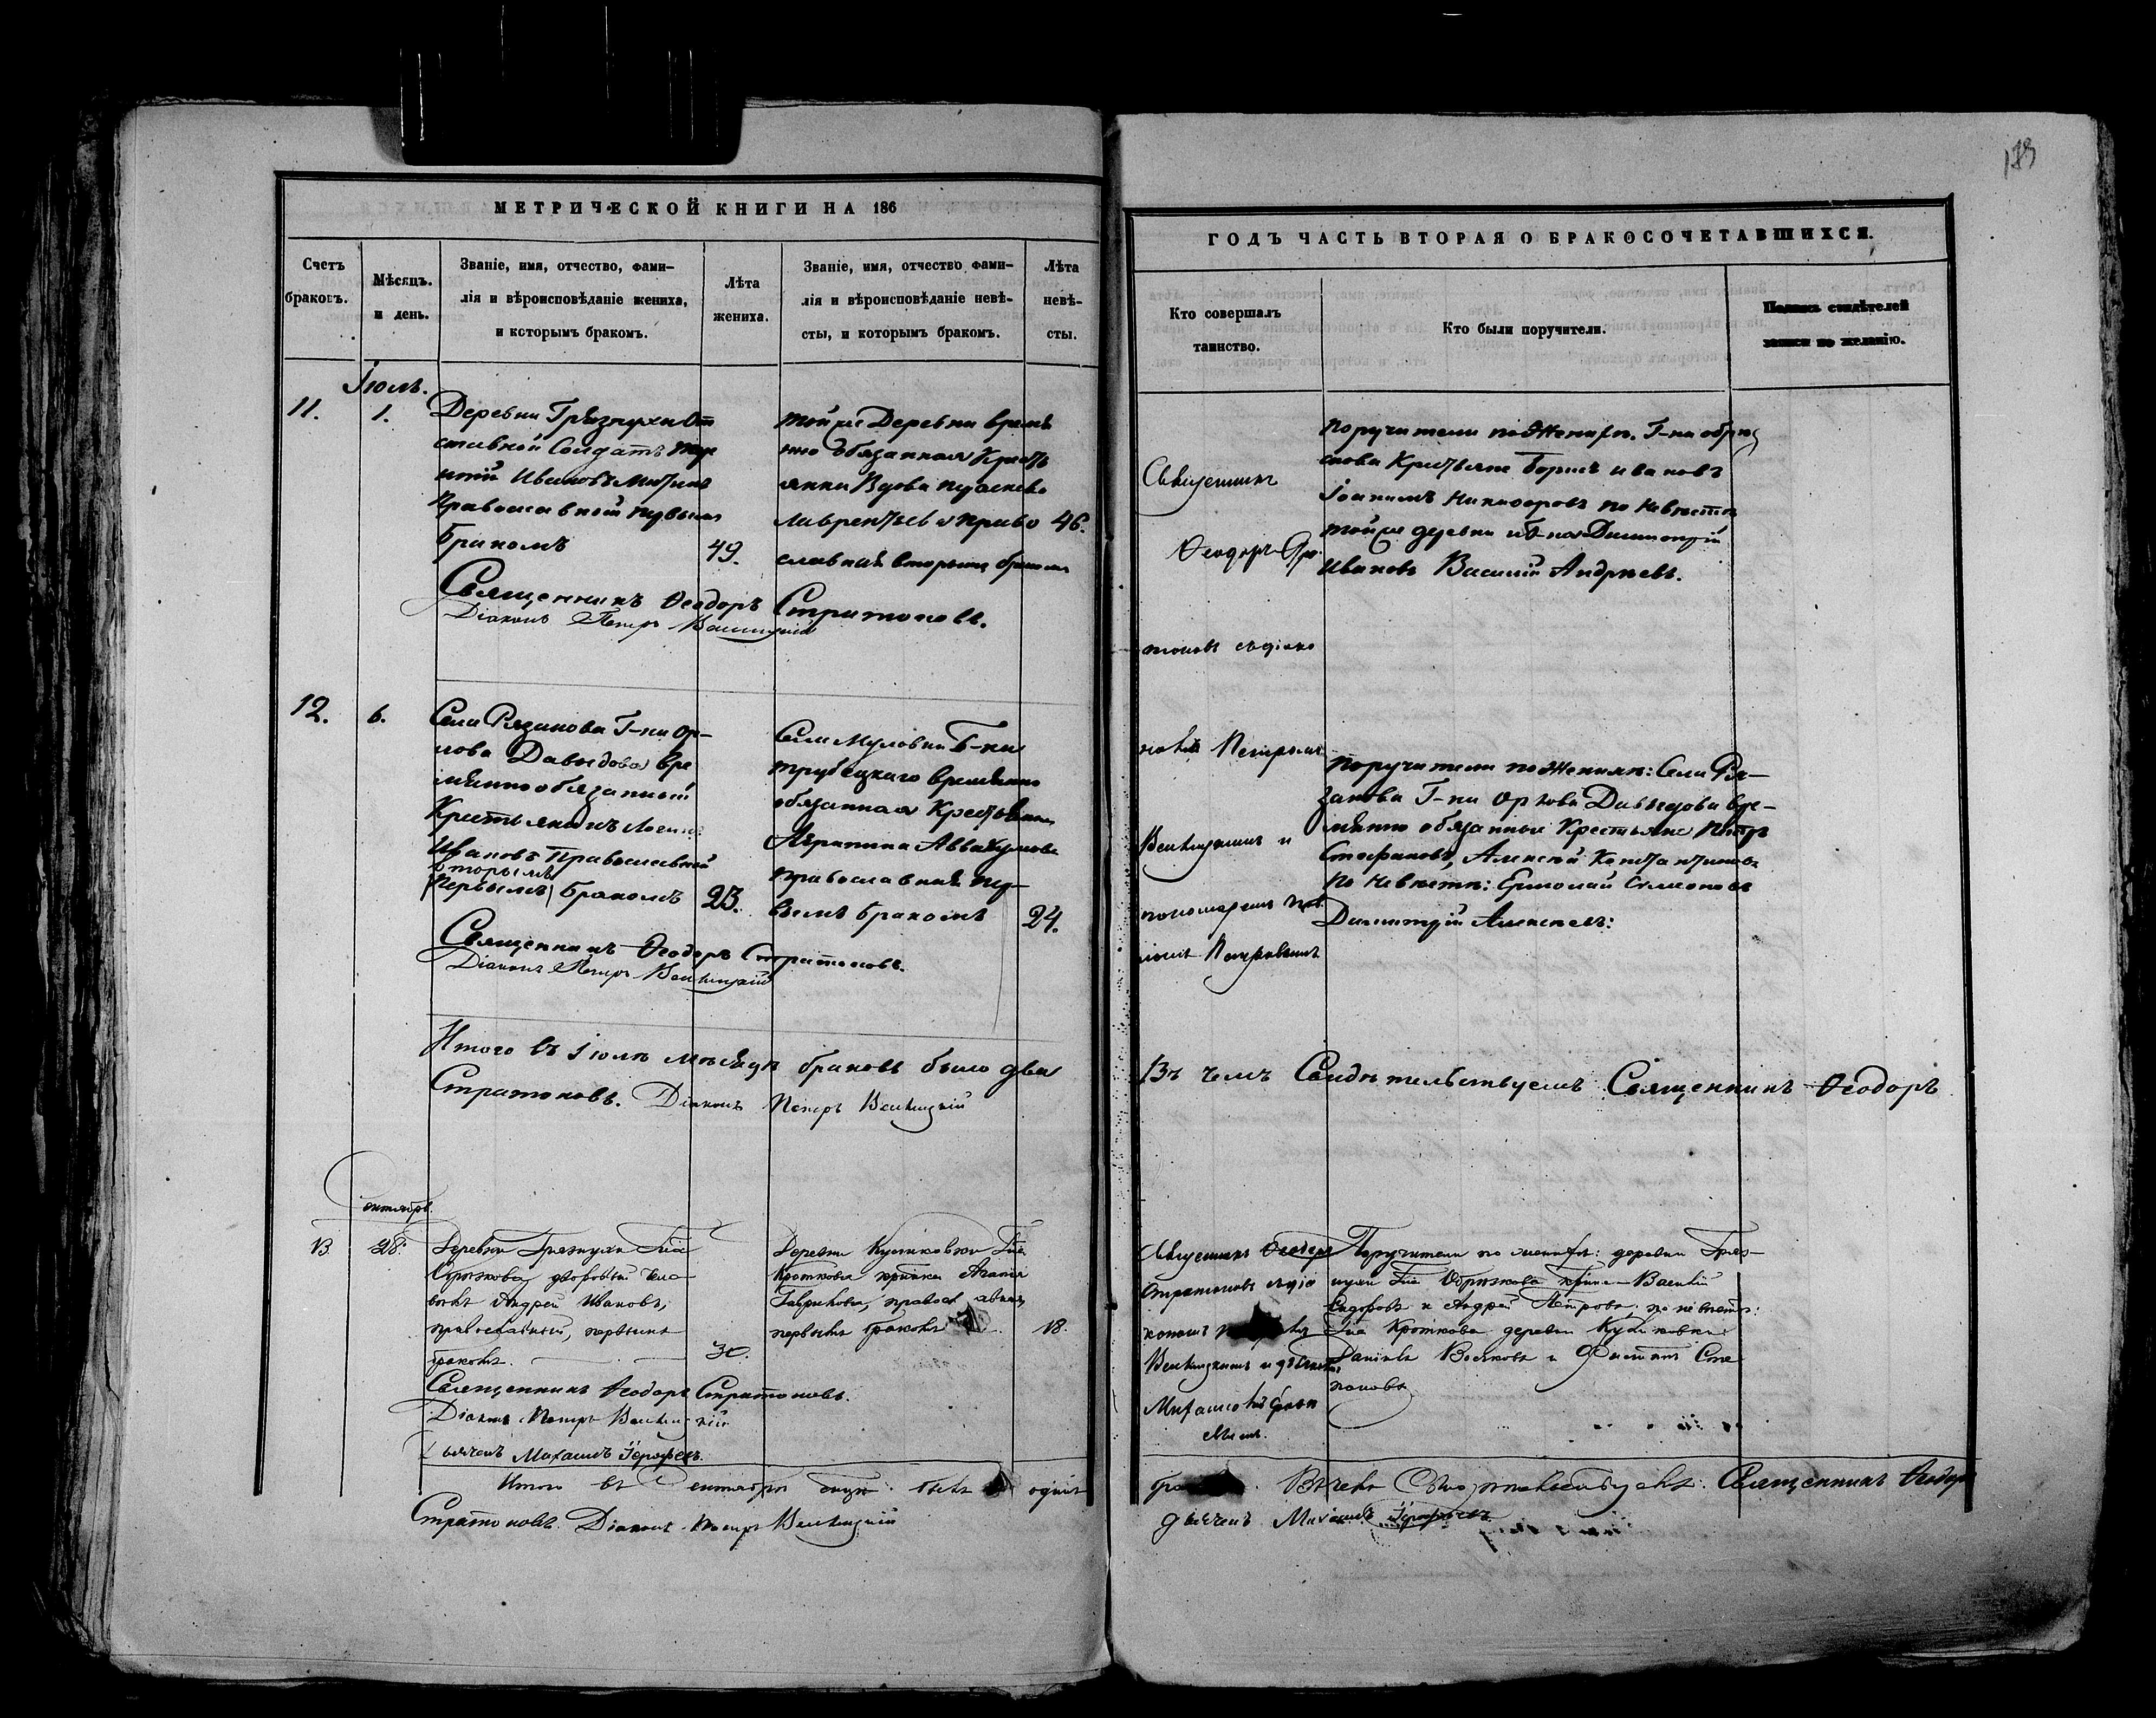 183
МЕТРИЧЕСКОЙ КНИГИ НА 186
Счетъ браковъ.
Мѣсяцъ. и день.
Званіе, имя, отчество, фами-
лія и вѣроисповѣданіе жениха,
и которымъ бракомъ.
Лѣта жениха.
Званіе, имя, отчество фами-
лія и вѣроисповѣданіе невѣ-
сты, и которымъ бракомъ.
Лѣта невѣ-
сты.
Іюль.
11.
1.
Деревни Грязнухи От
ставной Солдатъ
Ивановъ
Православный первымъ
бракомъ
49.
той же Деревни време
но обязанная Кресть
янка Вдова
Лаврентьева право
славная вторымъ бракомъ
46.
Священникъ Ѳеодоръ Стратоновъ.
Діаконъ Петръ Велицкій
12.
6.
Села Рязанова Г-на Ор-
лова Давыдова вре
менно обязанный
Крестьянинъ
Ивановъ Православный
вторымъ
(первымъ) бракомъ
23.
Села Мулловки Г-на
трубецкаго временно
обязанная Крестьянка
Агрипина Аввакумова
православная пер-
вымъ бракомъ
24.
Священникъ Ѳеодоръ Стратоновъ.
Діаконъ Петръ Велицкій
Итого въ Іюлѣ мѣсяцѣ браковъ было два
Стратоновъ. Діаконъ Петръ Велицкій
Сентябрь.
13.
28.
Деревни Грязнухи Гна
Обрѣзкова дворовый чело
вѣкъ Андрей Ивановъ,
православный, первымъ
бракомъ.
30.
Деревни Куликовки Гна
Кроткова крѣнка
Гаврилова, правосл авная,
первымъ бракомъ
18.
Священникъ Ѳеодоръ Стратоновъ.
Діаконъ Петръ Велицкій
Дьячекъ Михаилъ
Итого въ Сентябрѣ было одинъ
Стратоновъ. Діаконъ Петръ Велицкій
ГОДЪ ЧАСТЬ ВТОРАЯ О БРАКОСОЧЕТАВШИХСЯ.
Кто совершалъ
таинство.
Кто были поручители.
Подпись свидѣтелей
записи по желанію.
Священникъ
Ѳеодоръ Стра
тоновъ съ діако
номъ Петромъ
Велицкимъ и
пономаремъ
Петровымъ
Поручители по Женихѣ. Г-на обрѣз
кова Крестьяне Борисъ ивановъ
Іоакимъ Никифоровъ по Невѣстѣ
той же деревни и Г-на Димитрій
Ивановъ Василій Андреевъ.
Поручители по Женихѣ: Села Ря-
занова Г-на орлова Давыдова вре-
менно обязанные Крестьяне Петръ
Стефановъ, Алексей Константиновъ
по Невѣстѣ: Ермолай Симеоновъ
Димитрій Алексеевъ:
Въ чемъ Свидѣтельствуемъ Священникъ Ѳеодоръ
Священникъ Ѳеодоръ
Стратоновъ съ діа
кономъ
Велицкимъ и дьячкомъ
Михаиломъ
Поручители по женихѣ: деревни Гряз-
нухи Гна Обрѣзкова Василій
Сидоровъ и Андрей Петровъ; по невѣстѣ:
Гна Кроткова деревни Куликовки
Даніилъ и Филиппъ Сте
пановъ
Въ чемъ Свидѣтельствуемъ: Священникъ Ѳеодоръ
дьячекъ Михаилъ